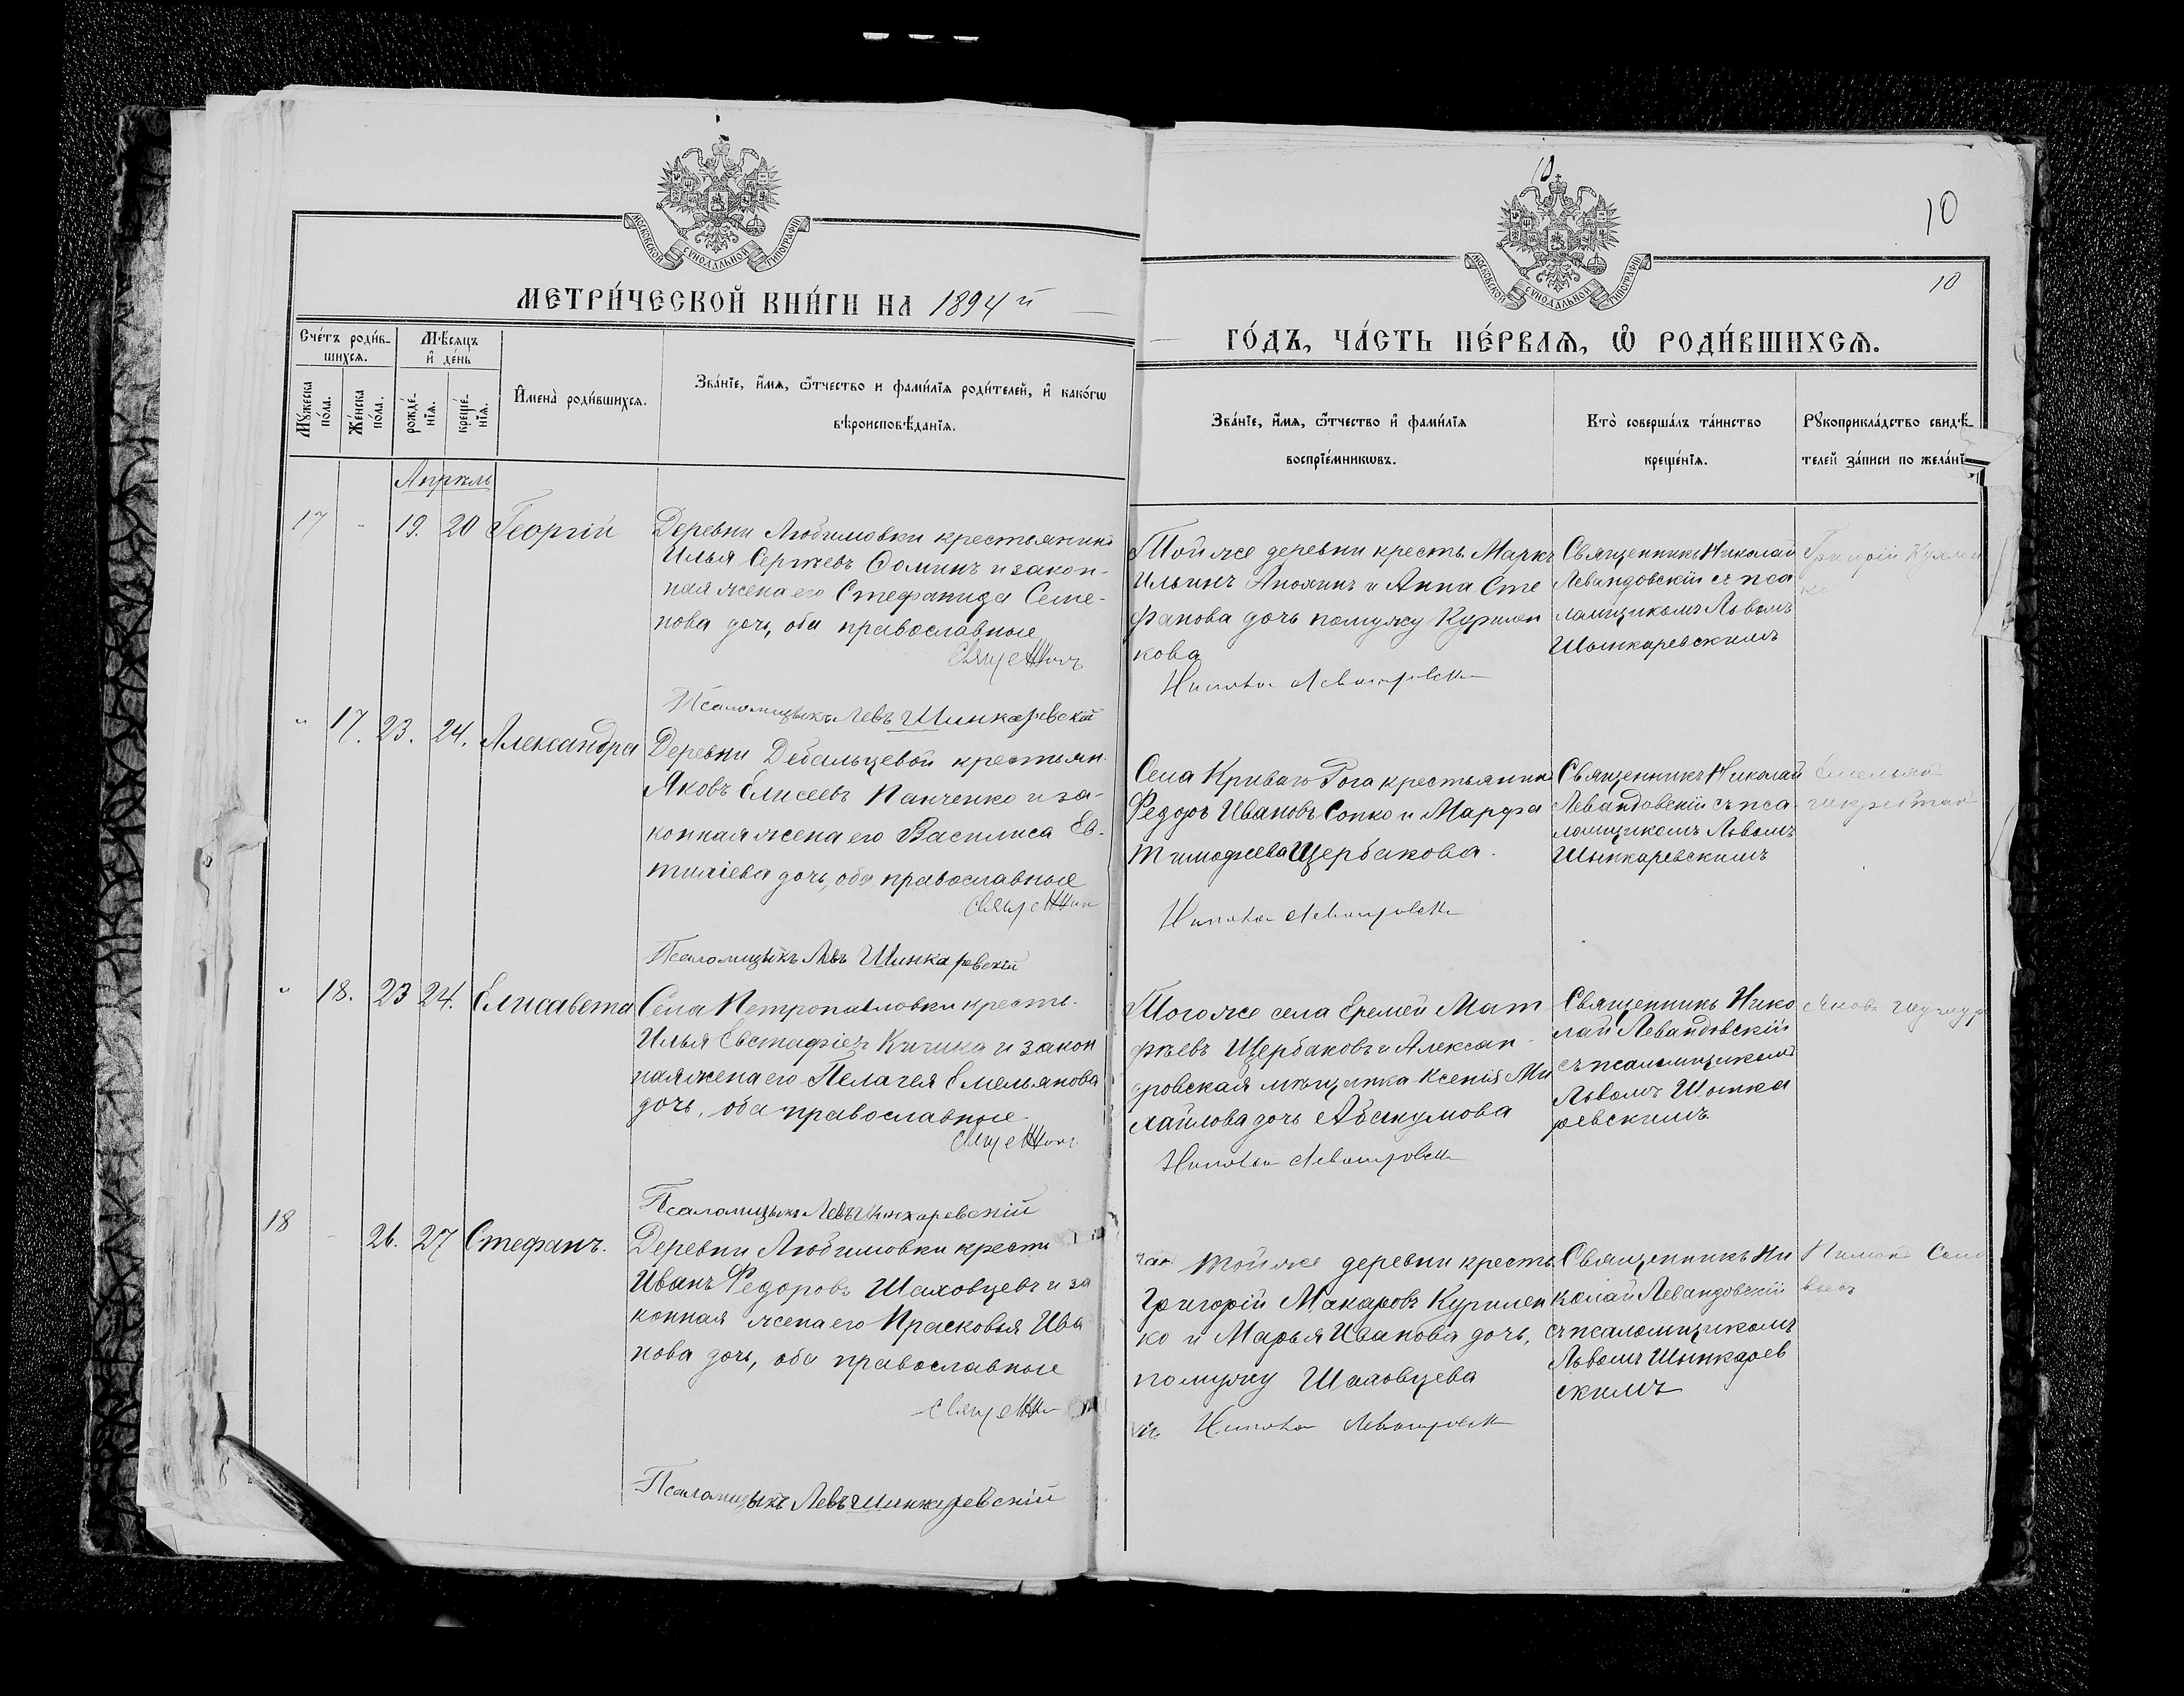 МОСКОВСКОЙ СѴНОДАЛЬНОЙ ТИПОГРАФІИ
МЕТРИ́ЧЕСКОЙ КНИ́ГИ НА 1894 й
Сче́тъ роди́в-
шихсѧ.
Мѣ́сѧцъ
и҆ де́нь
Мꙋ́жеска
по́ла.
Же́нска
по́ла.
рожде́-
нїѧ.
креще́-
нїѧ.
И҆мена̀ роди́вшихсѧ.
Зва́нїе, и҆́мѧ, ѻ҆́тчество и фами́лїѧ роди́телей, и҆ како́гѡ
вѣроисповѣ́данїѧ.
Апрѣль
17 - 19. 20 Георгій
Деревни Любимовки крестьянинъ
Илья Сергѣевъ Ѳоминъ и закон-
ная жена его Стефанида Семе-
нова дочь, оба православные
Священникъ
Псаломщыкъ Левъ Шинкаревскій
" 17. 23. 24. Александра
Деревни Дебальцевой крестьян.
Яковъ Елисеевъ Панченко и за-
конная жена его Василиса Ев-
тихіева дочь, оба православные
Священник
Псаломщыкъ Левъ Шинкаревскій
" 18. 23 24. Елисавета
Села Петропавловки кресть-
Илья Евстафіевъ и закон
ная жена его Пелагея Емельянова
дочь, оба православные
Священникъ
Псаломщыкъ Левъ Шинкаревскій
18 - 26. 27 Стефанъ.
Деревни Любимовки кресть
Иванъ Федоровъ Шаховцевъ и за
конная жена его Прасковья Ива
нова дочь, оба православные
Священник
Псаломщыкъ Левъ Шинкаревскій
10
10
10
МОСКОВСКОЙ СѴНОДАЛЬНОЙ ТИПОГРАФІИ
ГО́ДЪ, ЧА́СТЬ ПЕ́РВАѦ, Ѡ҆ РОДИ́ВШИХСѦ.
Зва́нїе, и҆́мѧ, ѻ҆́тчество и҆ фами́лїѧ
воспрїе́мникѡвъ.
Кто̀ соверша́лъ та́инство
креще́нїѧ.
Рꙋкоприкла́дство свидѣ́-
телей за́писи по жела́нї
Той же деревни кресть. Маркъ
Ильинъ и Анна Сте
фанова дочь помужу Курилен
кова
Николай Левандовскій
Священникъ Николай
Левандовскій съ пса
ломщикомъ Львомъ
Шинкаревскимъ
Григорій
ко
Села Криваго Рога крестьянинъ
Федоръ Ивановъ Сопко и Марфа
Тимофеева Щербакова.
Николай Левандовскій
Священникъ Николай
Левандовскій съ пса-
ломщикомъ Львомъ
Шинкаревскимъ
Того же села Еремей Мат
фѣевъ Щербаковъ и Алексан-
дровская мѣщанка Ксенія Ми
хайлова дочь Абакумова
Николай Левандовскій
Священникъ Нико
лай Левандовскій
съ псаломщикомъ
Львомъ Шинка
ревскимъ
Яковъ
Той же деревни кресть.
Григорій Макаровъ Курилен
ко и Марья Иванова дочь,
помужу Шаховцева
Николай Левандовскій
Священникъ Ни
колай Левандовскій
съ псаломщикомъ
Львомъ Шинкарев
скимъ